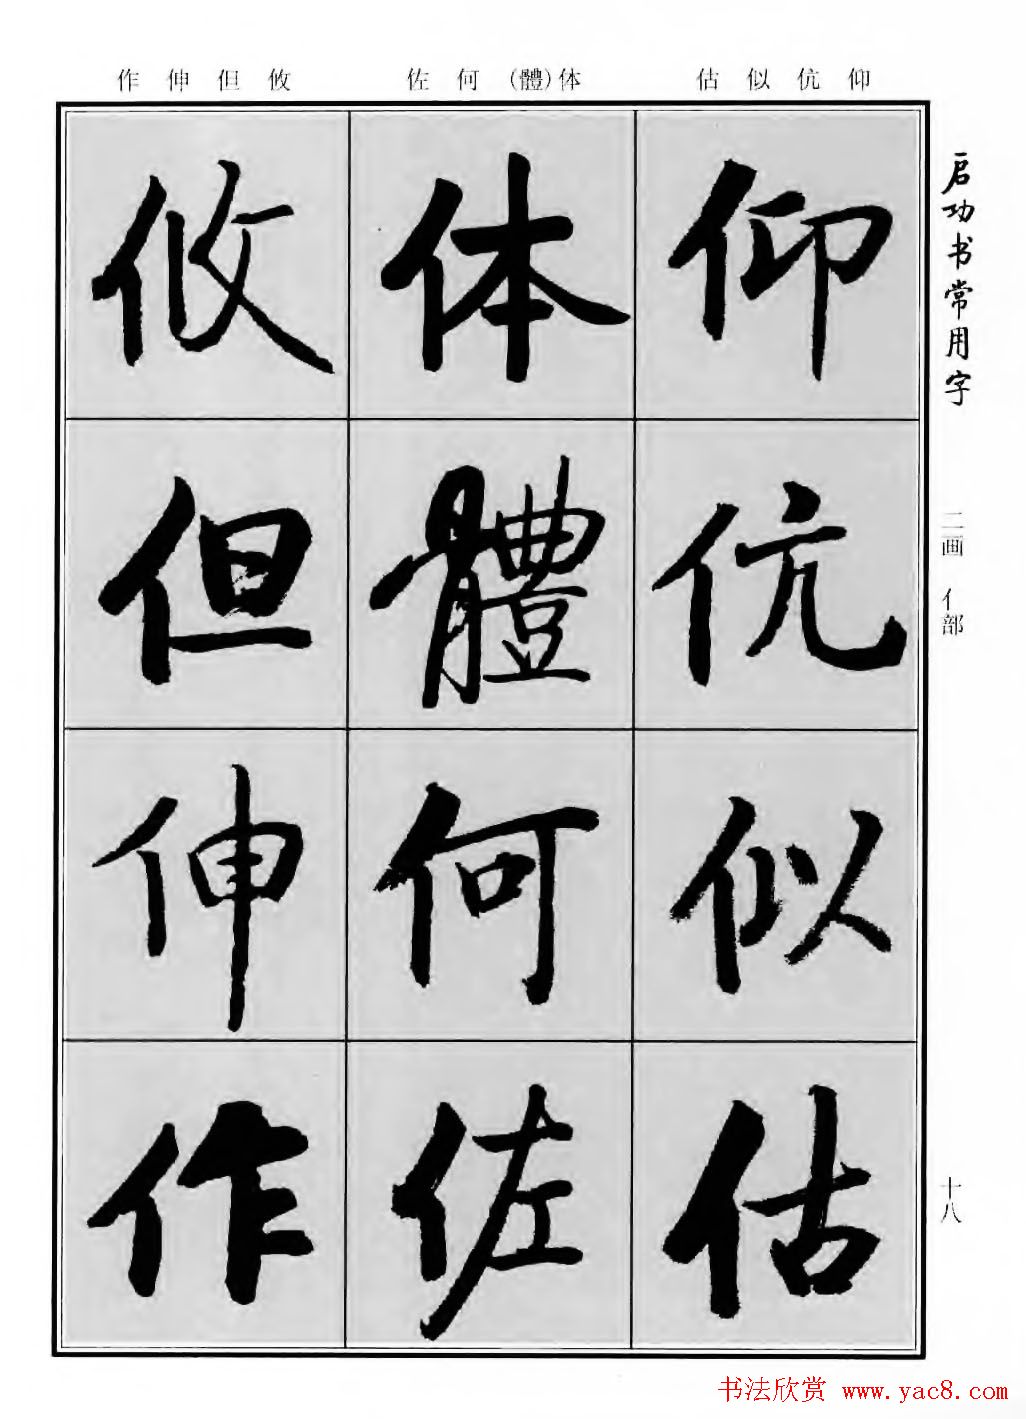 作 伸 但 攸
佐 何 (體)体
估 似 伉 仰
启功书常用字
二画 亻部
十八
仰
伉
似
估
体
體
何
佐
攸
但
伸
作
书法欣赏 www.yac8.com